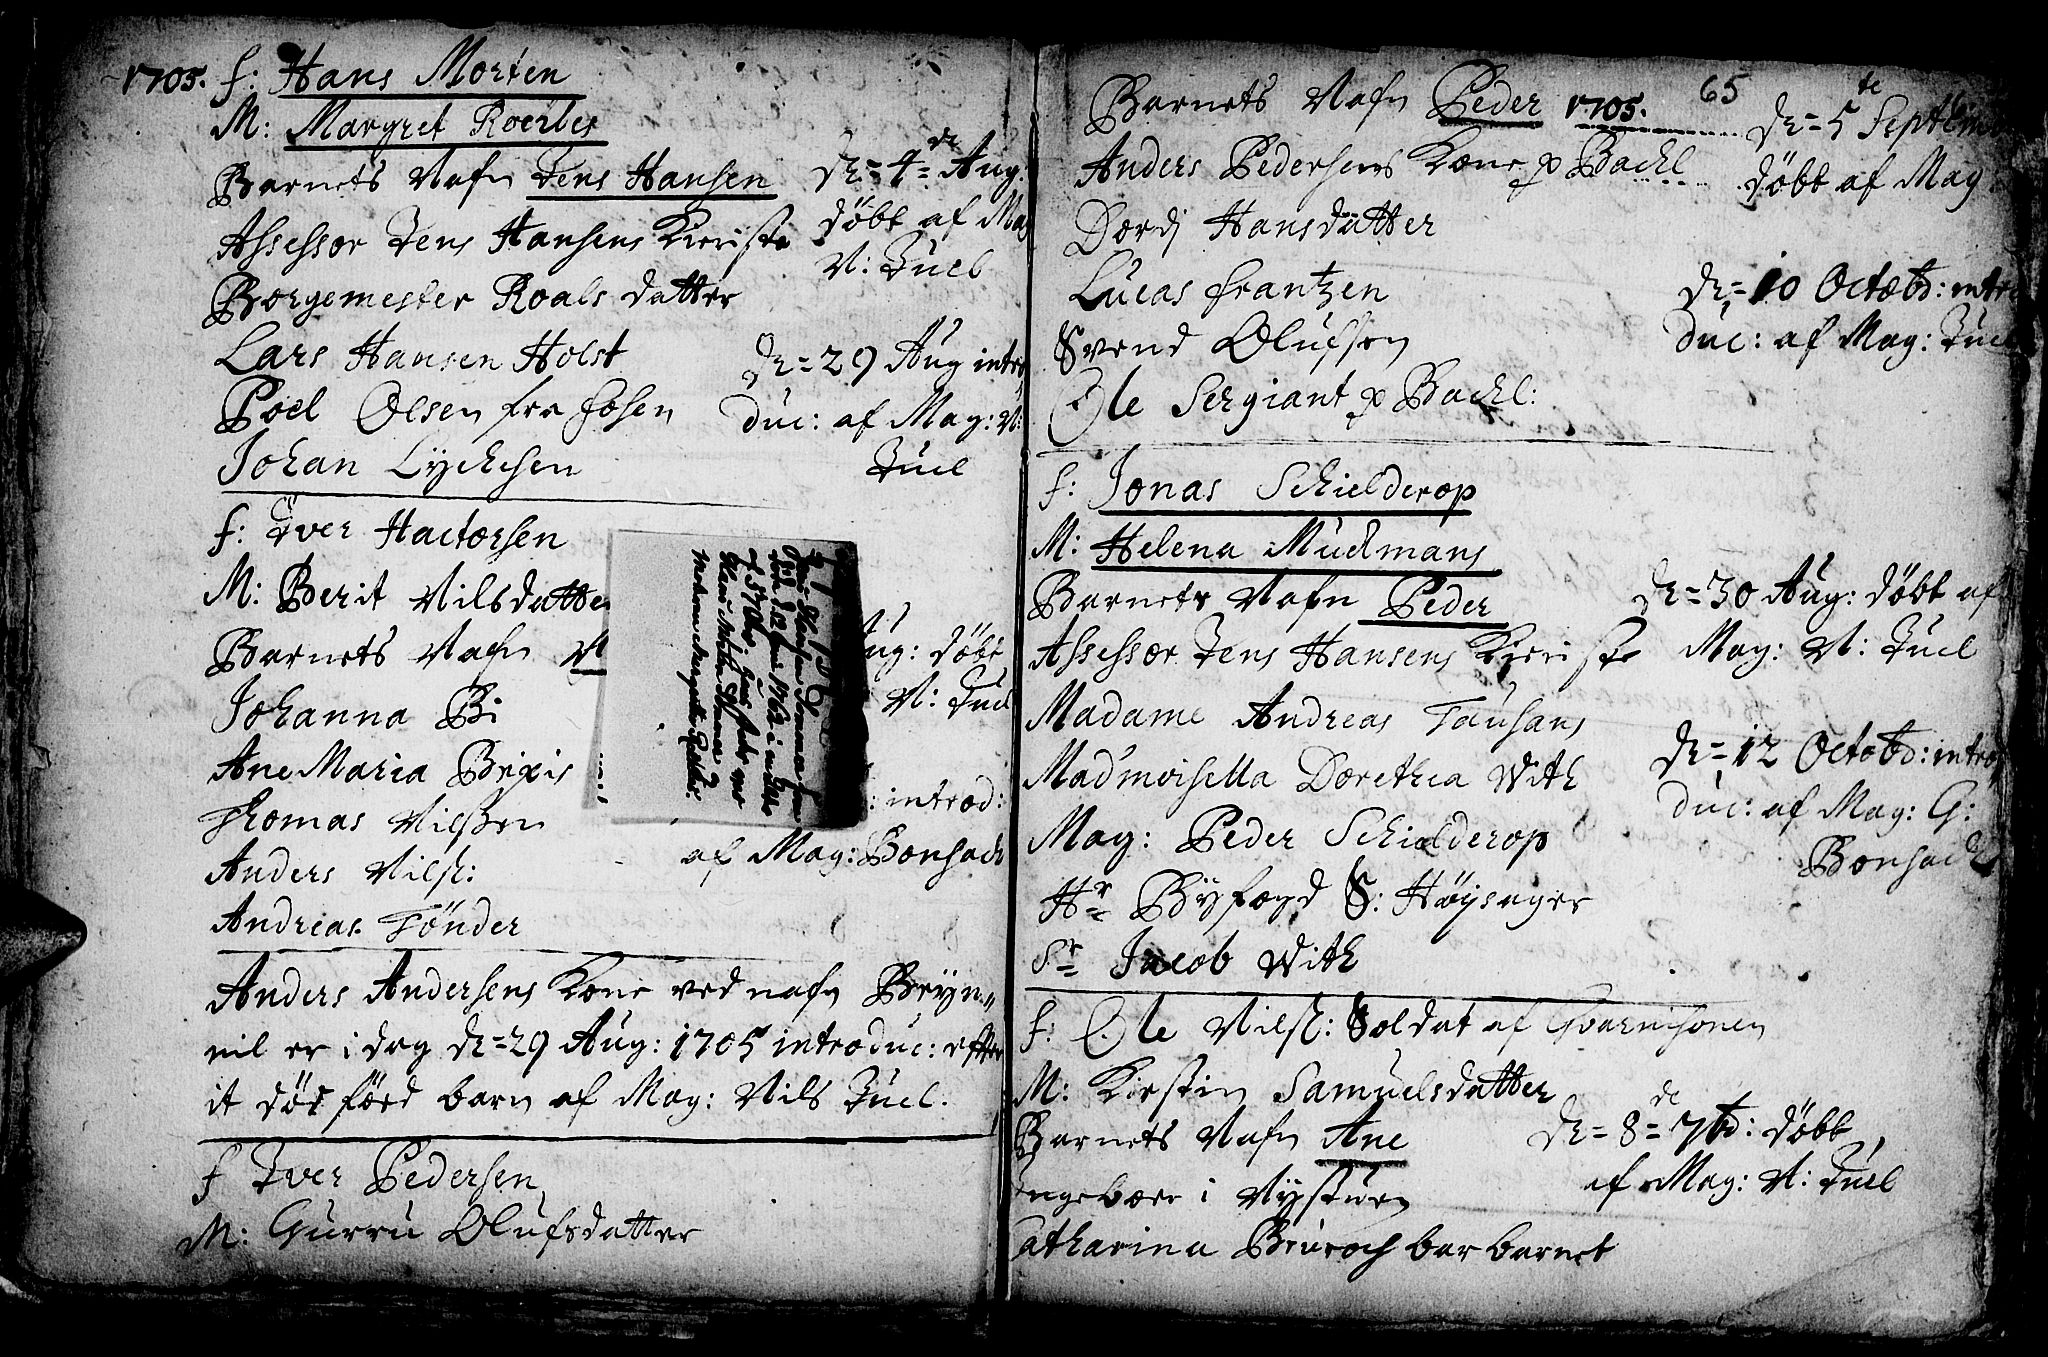 1705. f: Hans Morten
M: Margret Roerlies
Barnets Nafn Jens Hansen
Assessor Jens Hansens Kieriste
Borgemester Roals datter
Lars Hansen Holst
Poel Olsen fra Fosen
Johan Lyckesen
dn=4=de Aug.
döbt af Mag
N: Juel
dn=29 Aug intro
duc: af Mag: N:
Juel
f: Iver Hactorsen
M: Berit Nilsdatter
Barnets Nafn
Johanna Bi
Ane Maria Brixis
Thomas Nilssen
Anders Nilss:
Andreas Tönder
Aug: döbt
N: Juel
: introd:
af Mag: Bonsach
Jens Hansen
1762
Hans Morten
Moderen Margrete
Anders Andersens Kone ved nafn Bryn=
nil er i dag dn=29 Aug: 1705 introduc: efter
it död föed barn af Mag: Nils Juel.
f Iver Pedersen
M: Gurru Olufsdatter
65
Barnets Nafn Peder 1705.
Anders Pedersens Kone p Backl
Dordj Hansdatter
Lucas Frantzen
Svend Olufsen
Ole Sergiant p Backl:
dn=5te Septemb
döbt af Mag
dn=10 Octobr: intro
duc: af Mag: Juel
f: Jonas Schielderop
M: Helena Mudmans
Barnets Nafn Peder
Assessor Jens Hansens Kieriste
Madame Andreas Tausans
Mad'moisella Dorethea With
Mag: Peder Schielderop
Hr= Byfogd S: Höysager
Sr= Jacob With
dn=30 Aug: döbt af
Mag: N: Juel
dn=12 Octobr: intro
duc: af Mag: G:
Bonsach
f: Ole Nilss: Soldat af Gvarnisonen
M: Kirstin Samuelsdatter
Barnets Nafn Ane
Ingeboer i Nystuen
Catharina Bruroch bar barnet
dn=8=de 7br: döbt
af Mag: N: Juel